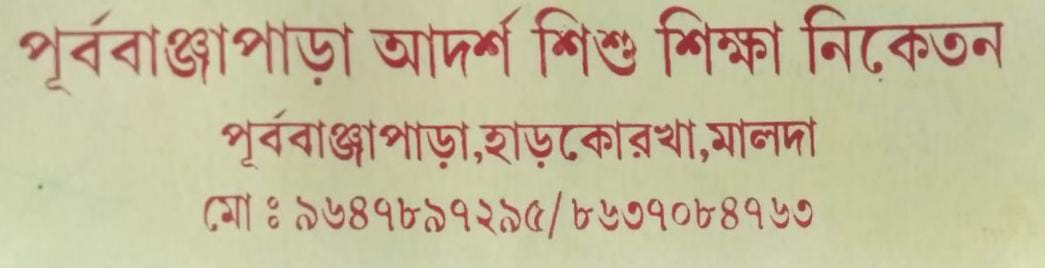 পূর্ববাঞ্জাপাড়া আদর্শ শিশু শিক্ষা নিকেতন
পূর্ববাঞ্জাপাড়া,হাড়কোরখা,মালদা
মো ঃ ৯৬৪৭৮৯৭২৯৫/৮৬৩৭০৮৪৭৬৩